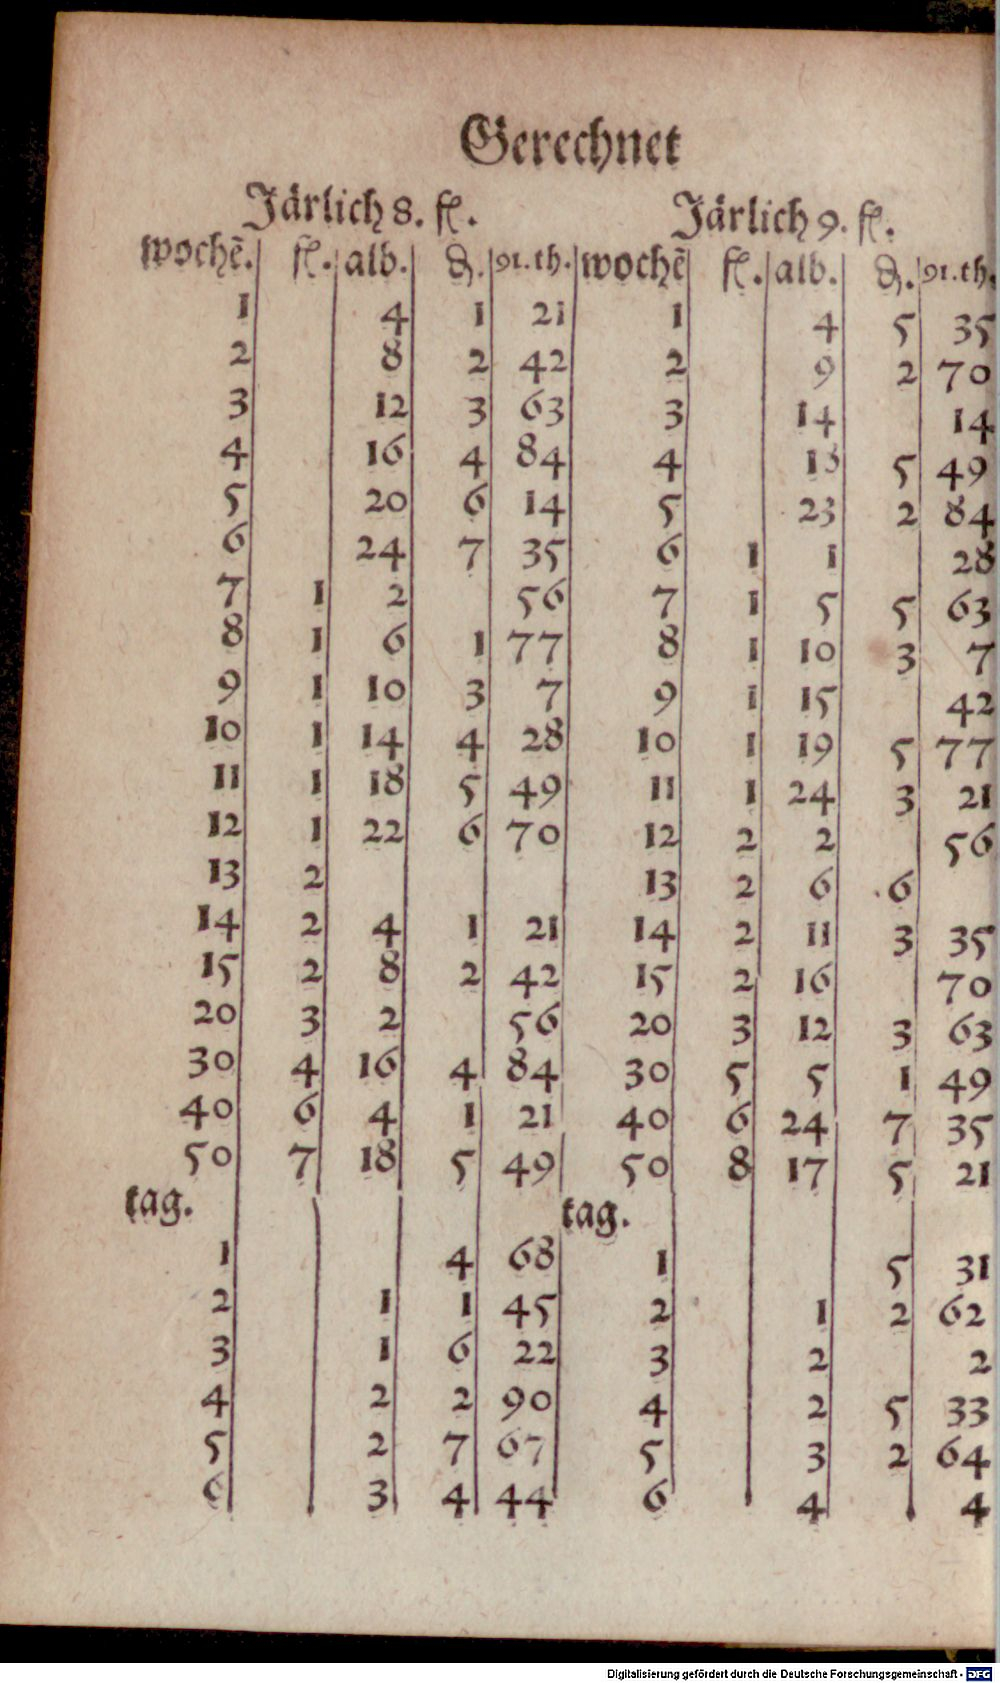 Gerechnet
Järlich 8. fl. Järlich 9. fl.
wochẽ. fl. alb. ₰. 91.th. wochẽ fl. alb. ₰. 91.th.
1 4 1 21 1 4 5 35
2 8 2 42 2 9 2 70
3 12 3 63 3 14 14
4 16 4 84 4 13 5 49
5 20 6 14 5 23 2 84
6 24 7 35 6 1 1 28
7 1 2 56 7 1 5 5 63
8 1 6 1 77 8 1 10 3 7
9 1 10 3 7 9 1 15 42
10 1 14 4 28 10 1 19 5 77
11 1 18 5 49 11 1 24 3 21
12 1 22 6 70 12 2 2 56
13 2 13 2 6 6
14 2 4 1 21 14 2 11 3 35
15 2 8 2 42 15 2 16 70
20 3 2 56 20 3 12 3 63
30 4 16 4 84 30 5 5 1 49
40 6 4 1 21 40 6 24 7 35
50 7 18 5 49 50 8 17 5 21
tag. tag.
1 4 68 1 5 31
2 1 1 45 2 1 2 62
3 1 6 22 3 2 2
4 2 2 90 4 2 5 33
5 2 7 67 5 3 2 64
6 3 4 44 6 4 4
Digitalisierung gefördert durch die Deutsche Forschungsgemeinschaft - DFG